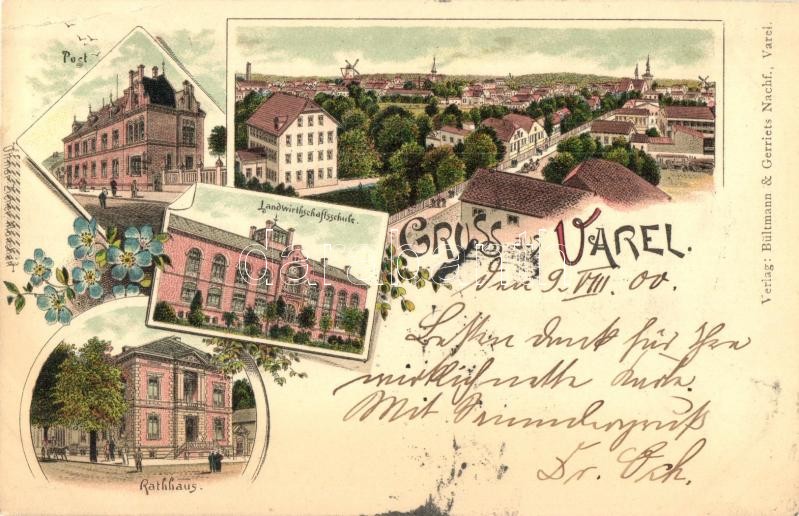 Post
Landwirthschaftsschule.
Rathhaus.
GRUSS aus VAREL.
den 9. VIII. 00.
Besten dank für Ihre
wirklich nette Karte.
Mit
Dr. Och.
Verlag: Bültmann & Gerriets Nachf., Varel.